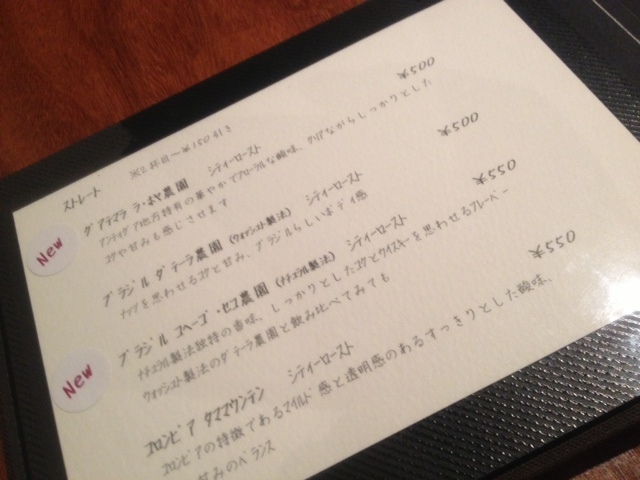 ストレート ※2杯目〜¥150引き
New
グアテマラ ラ・ホヤ農園 シティーロースト ¥500
アンティグア地方特有の華やかでフローラルな酸味、クリアながらしっかりとした
コクや甘みも感じさせます
ブラジル ダテーラ農園 (ウォッシュト製法) シティーロースト ¥500
ナッツを思わせるコクと甘み、ブラジルらしいボディ感
New
ブラジル コヘーゴ・セコ農園 (ナチュラル製法) シティーロースト ¥550
ナチュラル製法独特の香味、しっかりとしたコクとウイスキーを思わせるフレーバー
ウォッシュト製法のダテーラ農園と飲み比べてみても
コロンビア タママウンテン シティーロースト ¥550
コロンビアの特徴であるマイルド感と透明感のあるすっきりとした酸味、
甘みのバランス